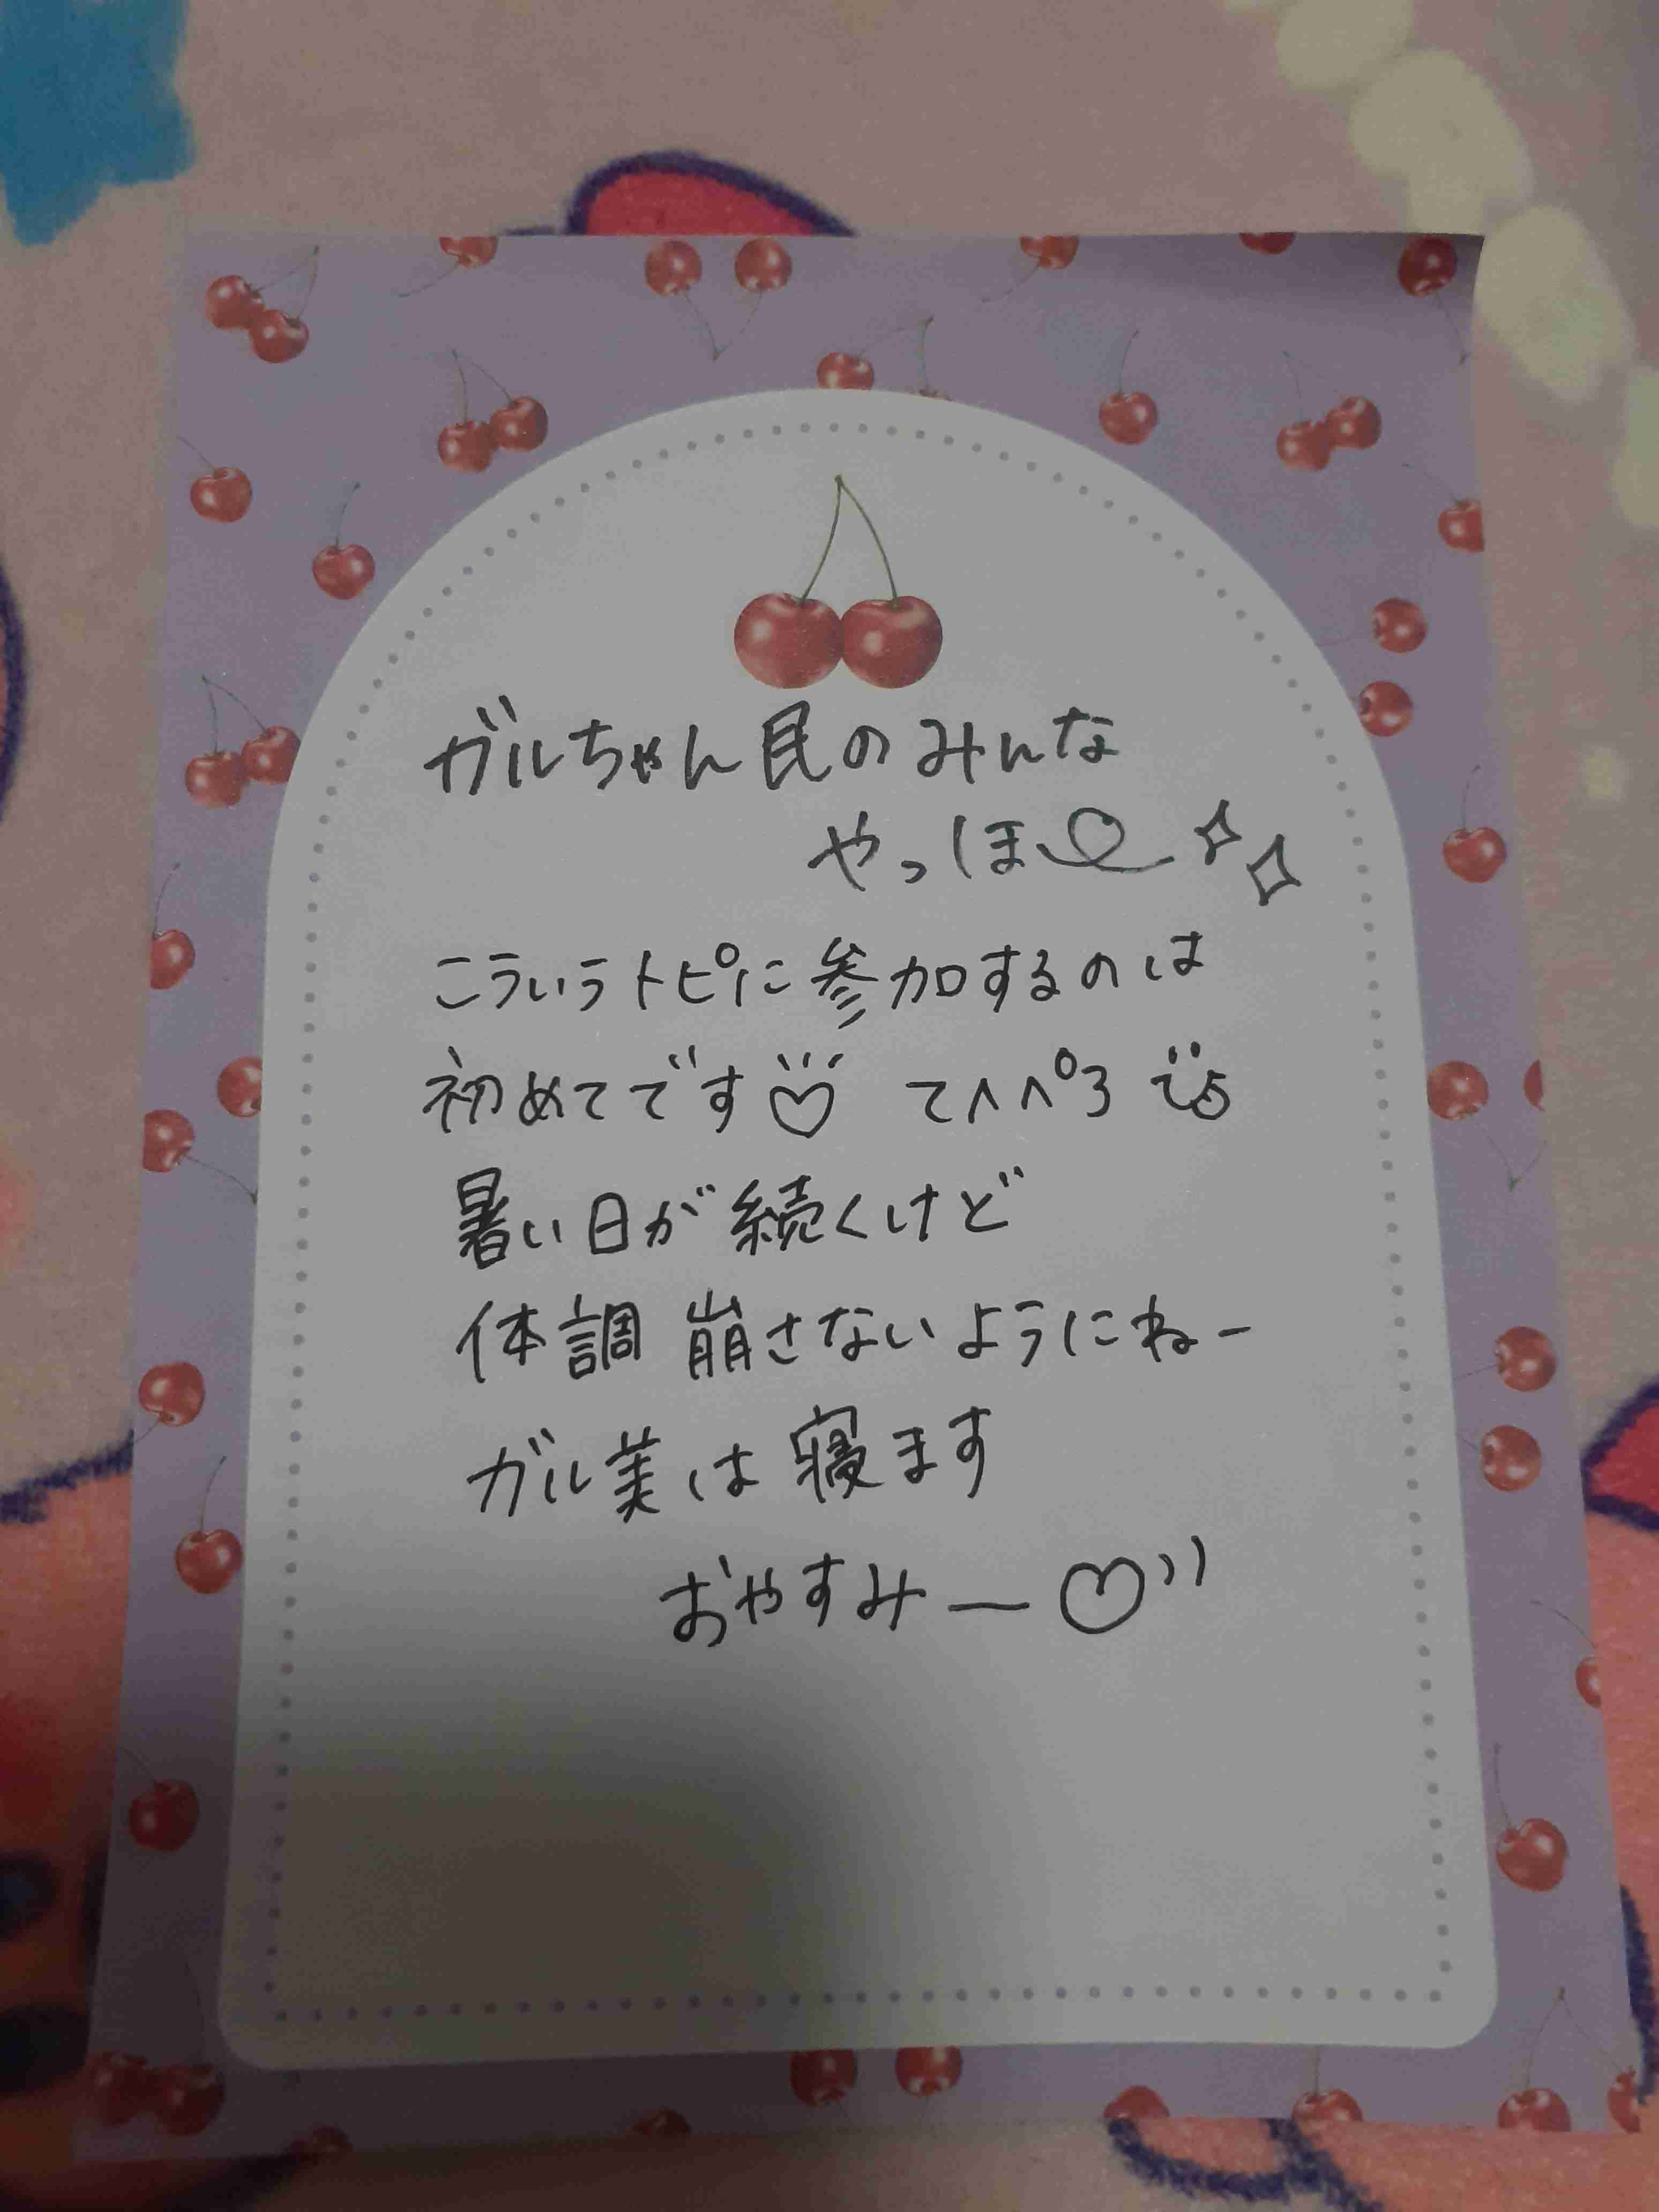 ガルちゃん民のみんな
やっほ〜♡✧✧
こういうトピに参加するのは
初めてです♡ てへぺろ
暑い日が続くけど
体調崩さないようにねー
ガル美は寝ます
おやすみー♡))